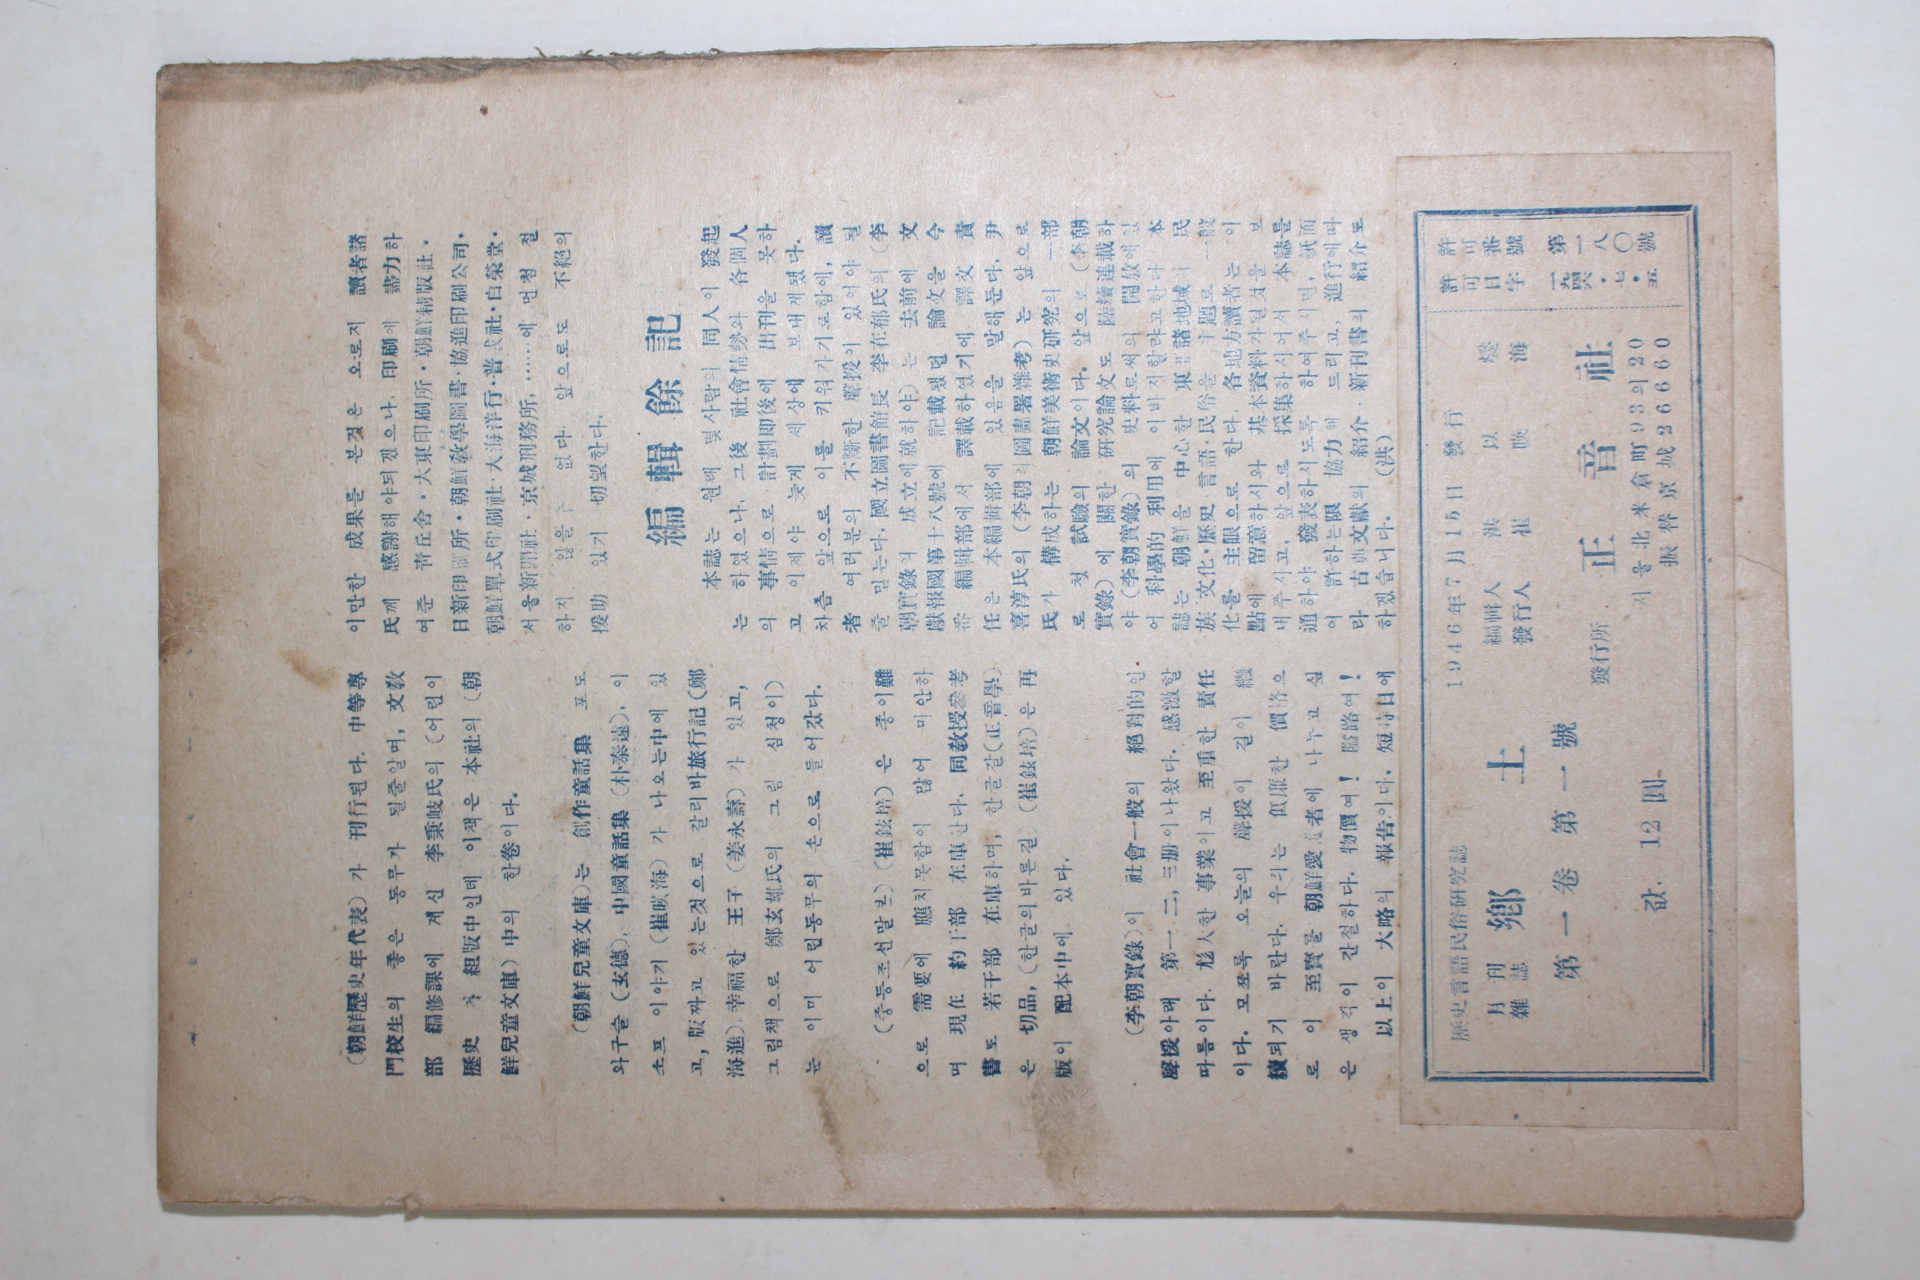 (朝鮮歷史年代表)가 刊行된다. 中等專
門校生의 좋은 동무가 될줄알며, 文敎
部 編修課에 계신 李秉岐氏의 (어린이
歷史가 組版中인데 이책은 本社의 (朝
鮮兒童文庫)中의 한卷이다.
(朝鮮兒童文庫)는 創作童話集 포도
와구슬(玄德), 中國童話集(朴泰遠), 이
소프 이야기(崔暎海)가 나오는中에 있
고, 版짜고 있는것으로 갈리바旅行記(鄭
海進). 幸福한 王子(姜永壽)가 있고,
그림책으로 鄭玄雄氏의 그림 심청이)
는 이미 어린동무의 손으로 들어갔다.
(중등조선말본)(崔鉉培)은 종이難
으로 需要에 應치못함이 많어 미안하
며 現在 約干部 在庫한다. 同敎授參考
書도 若干部 在庫하며, 한글갈(正音學)
은 切品, (한글의바른길)(崔鉉培)은 再
版이 配本中에 있다.
(李朝實錄)이 社會一般의 絕對的인
聲援아래 第一, 二, 三册이나왔다. 感激할
따름이다. 尨大한 事業이고 至重한 責任
이다. 모쪼록 오늘의 聲援이 길이 繼
續되기 바란다. 우리는 低廉한 價格으
로 이 至寶를 朝鮮愛 者에 나누고 싶
은 생각이 간절하다. 物價여! 隘路여!
以上이 大略의 報告이다. 短時日에
이만한 成果를 본것은 오로지 讀者諸
氏께 感謝해야되겠으나, 印刷에 盡力하
여준 靑丘舍·大東印刷所·朝鮮精版社·
日新印刷所·朝鮮敎學圖書·協進印刷公司·
朝鮮單式印刷社·大海洋行·普 社·白榮堂·
서울新聞社·京城刑務所,……에 먼첨 절
하지 않을수 없다. 앞으로도 不絕의
援助 있기 切望한다.
編輯餘記
本誌는 원래 몇사람의 同人이 發起
는 하였으나, 그後 社會情勢와 各個人
의 事情으로 計劃即後에 出刊을 못하
고 이제야 늦게 세상에 보내게됐다.
차츰 앞으로 이를 키워가기로함에, 讀
者 여러분의 不斷한 鞭援이 있어야 될
줄 믿는다. 國立圖書館長 李在郁氏의 (李
朝實錄의 成立에就하야)는 去前에 文
獻報國第十八號에 記載했던 論文을 今
番 編輯部에서 譯載하였기에 譯文 責
任은 本編輯部에 있음을 말해둔다. 尹
喜淳氏의 (李朝의 圖畵署雜考)는 앞으로
民가 構成하는 朝鮮美術史硏究의 一部
로 첫 試驗의 論文이다. 앞으로 (李朝
實錄)에 關한 硏究論文도 陸續連載하
야 (李朝實錄)의 史料로써의 開放에있
어 科學的 利用에 이바지할랴고한다 本
誌는 朝鮮을 中心한 東 諸地域의 民
族文化·歷史·言語·民俗을 主題로 一般
化를 主眼으로 한다. 各地方讀者는 이
點에 留意하시와 基本資料가될것을 보
내주시고, 앞으로 採集하서어서 本誌를
通하야 發表하시도록 하여주시면, 紙面
이 許하는限 協力해 드리고, 進行에따
라 古典文獻의 紹介·新刊書의 紹介도
하겠습니다. (洪)
歷史言語民俗硏究誌
月刊
雜誌 鄕土
第一卷 第一號
값. 12圓
1946年7月15日 發行
編輯人 洪以燮
發行人 崔暎海
發行所 正音社
서울北米倉町93의20
振替京城26660
許可番號 第一八〇號
許可日字 一九四六·七·五